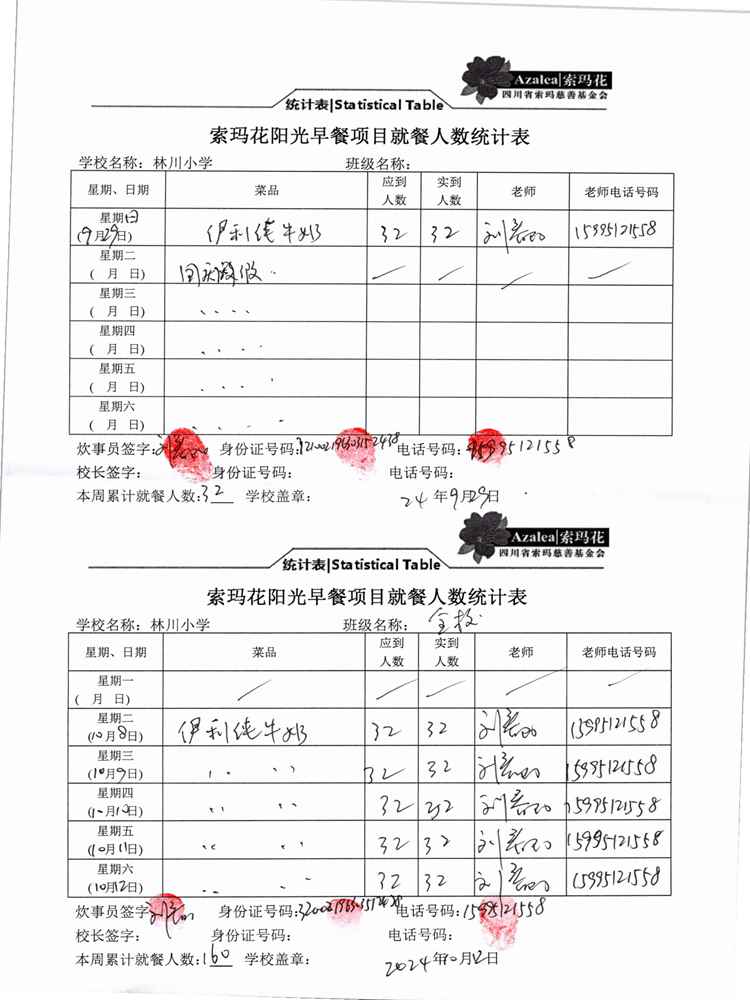 Azalea|索玛花
四川省索玛慈善基金会
统计表|Statistical Table
索玛花阳光早餐项目就餐人数统计表
学校名称：林川小学 班级名称：
星期、日期 菜品 应到人数 实到人数 老师 老师电话号码
星期日 (9月29日) 伊利纯牛奶 32 32 刘 15995121558
星期二 ( 月 日) 国庆假
星期三 ( 月 日)
星期四 ( 月 日)
星期五 ( 月 日)
星期六 ( 月 日)
炊事员签字：刘 身份证号码： 电话号码：15995121558
校长签字： 身份证号码： 电话号码：
本周累计就餐人数：32 学校盖章： 24年9月29日
Azalea|索玛花
四川省索玛慈善基金会
统计表|Statistical Table
索玛花阳光早餐项目就餐人数统计表
学校名称：林川小学 班级名称：全校
星期、日期 菜品 应到人数 实到人数 老师 老师电话号码
星期一 ( 月 日)
星期二 (10月8日) 伊利纯牛奶 32 32 刘 15995121558
星期三 (10月9日) 32 32 刘 15995121558
星期四 (10月10日) 32 32 刘 15995121558
星期五 (10月11日) 32 32 刘 15995121558
星期六 (10月12日) 32 32 刘 15995121558
炊事员签字：刘 身份证号码： 电话号码：15995121558
校长签字： 身份证号码： 电话号码：
本周累计就餐人数：160 学校盖章： 2024年10月12日